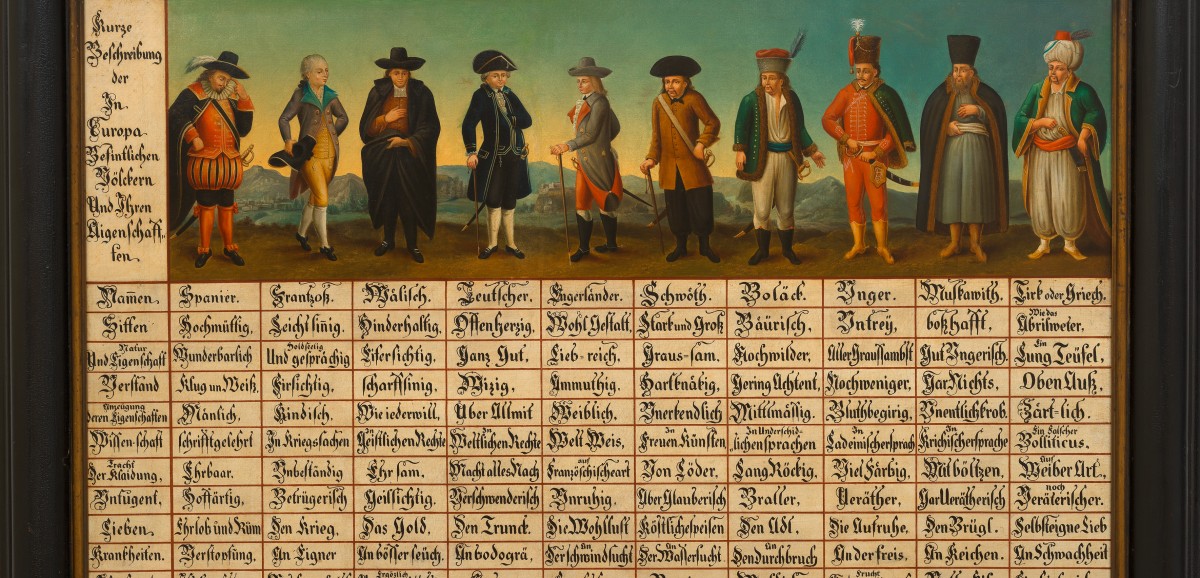 Kurze
Beschreibung
der
In
Europa
Befintlichen
Völckern
Und Ihren
Aigenschaff-
ten.
Namen. Spanier. Frantzoß. Wälisch. Teutscher. Engerländer. Schwöth. Boläck. Vnger. Muskawith. Tirk oder Griech.
Sitten Hochmüttig, Leicht sinig. Hinderhaltig, Offenherzig, Wohl Gestalt, Stark und Groß Bäurisch, Vntrey, boßhafft, Wie das Abrilweter,
Natur Und Eigenschaft Wunderbarlich Holdseelig Und gesprächig Eifersichtig, Ganz Gut, Lieb-reich, Graus-sam, Nochwilder, Aller Graussambst Gut Vngerisch, Ein Lung Teüfel,
Verstand Klug un Weiß, Firsichtig, scharffsinig, Wizig, Ammuthig, Hartknäkig, Gering Achtent, Nochweniger, Gar Nichts, Oben Auß,
deren Eigenschaften Mänlich, Kindisch, Wie iederwill, Über Allmit Weiblich, Vnerkendlich Mittlmässig, Bluthbegirig, Vnentlichkrob, Zärt-lich.
Wissen-schaft schrifftgelehrt In Kriegssachen Geistlichen Rechte In Weltlichen Rechte Welt Weis, In Freuen Künsten In Underschid- lichensprachen In Ladeinischersprach In Krichischersprache Ein Falscher Bolliticus.
Tracht Der Klaidung, Ehrbaar. Vnbeständig Ehr sam, Macht alles Nach auf Französchischeart Von Löder, Lang Röckig, Viel Färbig, Mit böltzen, Auf Weiber Art,
Vntugent, Hoffärtig, Betrügerisch Geilsichtig, Verschwenderisch Vnruhig, Über Glauberisch Braller, Veräther, Gar Verätherisch noch Verätterischer.
Lieben, Ehrlob und Rüm Den Krieg, Das Gold, Den Trunck, Die Wohllust Köstlichespeisen Den Adl, Die Aufruhe, Den Brügl, Selbsteigne Lieb
Krankheiten. Verstopfung, An Eigner An bösser seüch, An bodogrä, Der schwindsucht An Der Wassersucht An Den Durchbruch An der freis, An Keichen, An Schwachheit